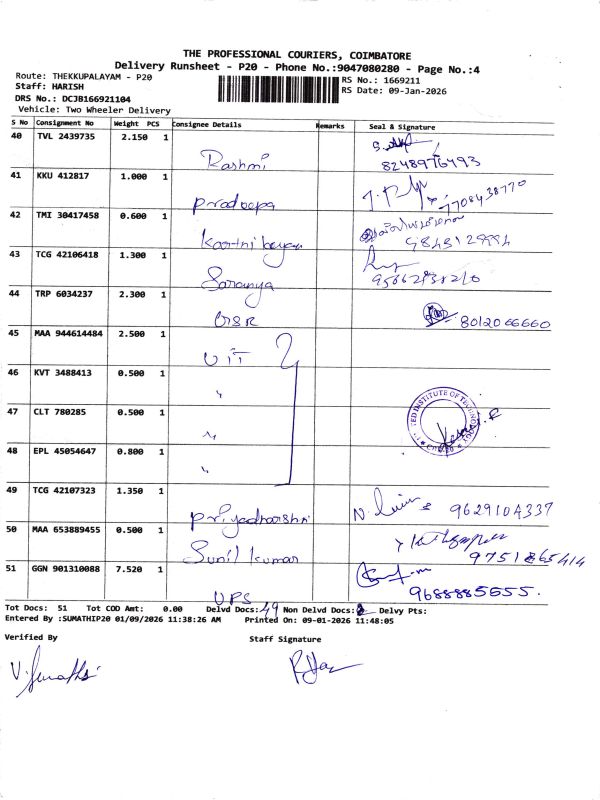 THE PROFESSIONAL COURIERS, COIMBATORE
Delivery Runsheet - P20 - Phone No.:9047080280 - Page No.:4
Route: THEKKUPALAYAM - P20
Staff: HARISH
DRS No.: DCJB166921104
Vehicle: Two Wheeler Delivery
RS No.: 1669211
RS Date: 09-Jan-2026
S No Consignment No Weight PCS Consignee Details Remarks Seal & Signature
40 TVL 2439735 2.150 1 Rashmi 8248976493
41 KKU 412817 1.000 1 Pradeepa 7708438770
42 TMI 30417458 0.600 1
43 TCG 42106418 1.300 1 Saranya
44 TRP 6034237 2.300 1 8012066660
45 MAA 944614484 2.500 1 UIT
46 KVT 3488413 0.500 1 "
47 CLT 780285 0.500 1 "
48 EPL 45054647 0.800 1 "
INSTITUTE OF TECHNOLOGY
49 TCG 42107323 1.350 1 Priyadharshni 9629104337
50 MAA 653889455 0.500 1 Sunil kumar
51 GGN 901310088 7.520 1 UPS 9688885655.
Tot Docs: 51 Tot COD Amt: 0.00 Delvd Docs: 49 Non Delvd Docs: 2 Delvy Pts:
Entered By :SUMATHIP20 01/09/2026 11:38:26 AM Printed On: 09-01-2026 11:48:05
Verified By Staff Signature
V. Sumathi